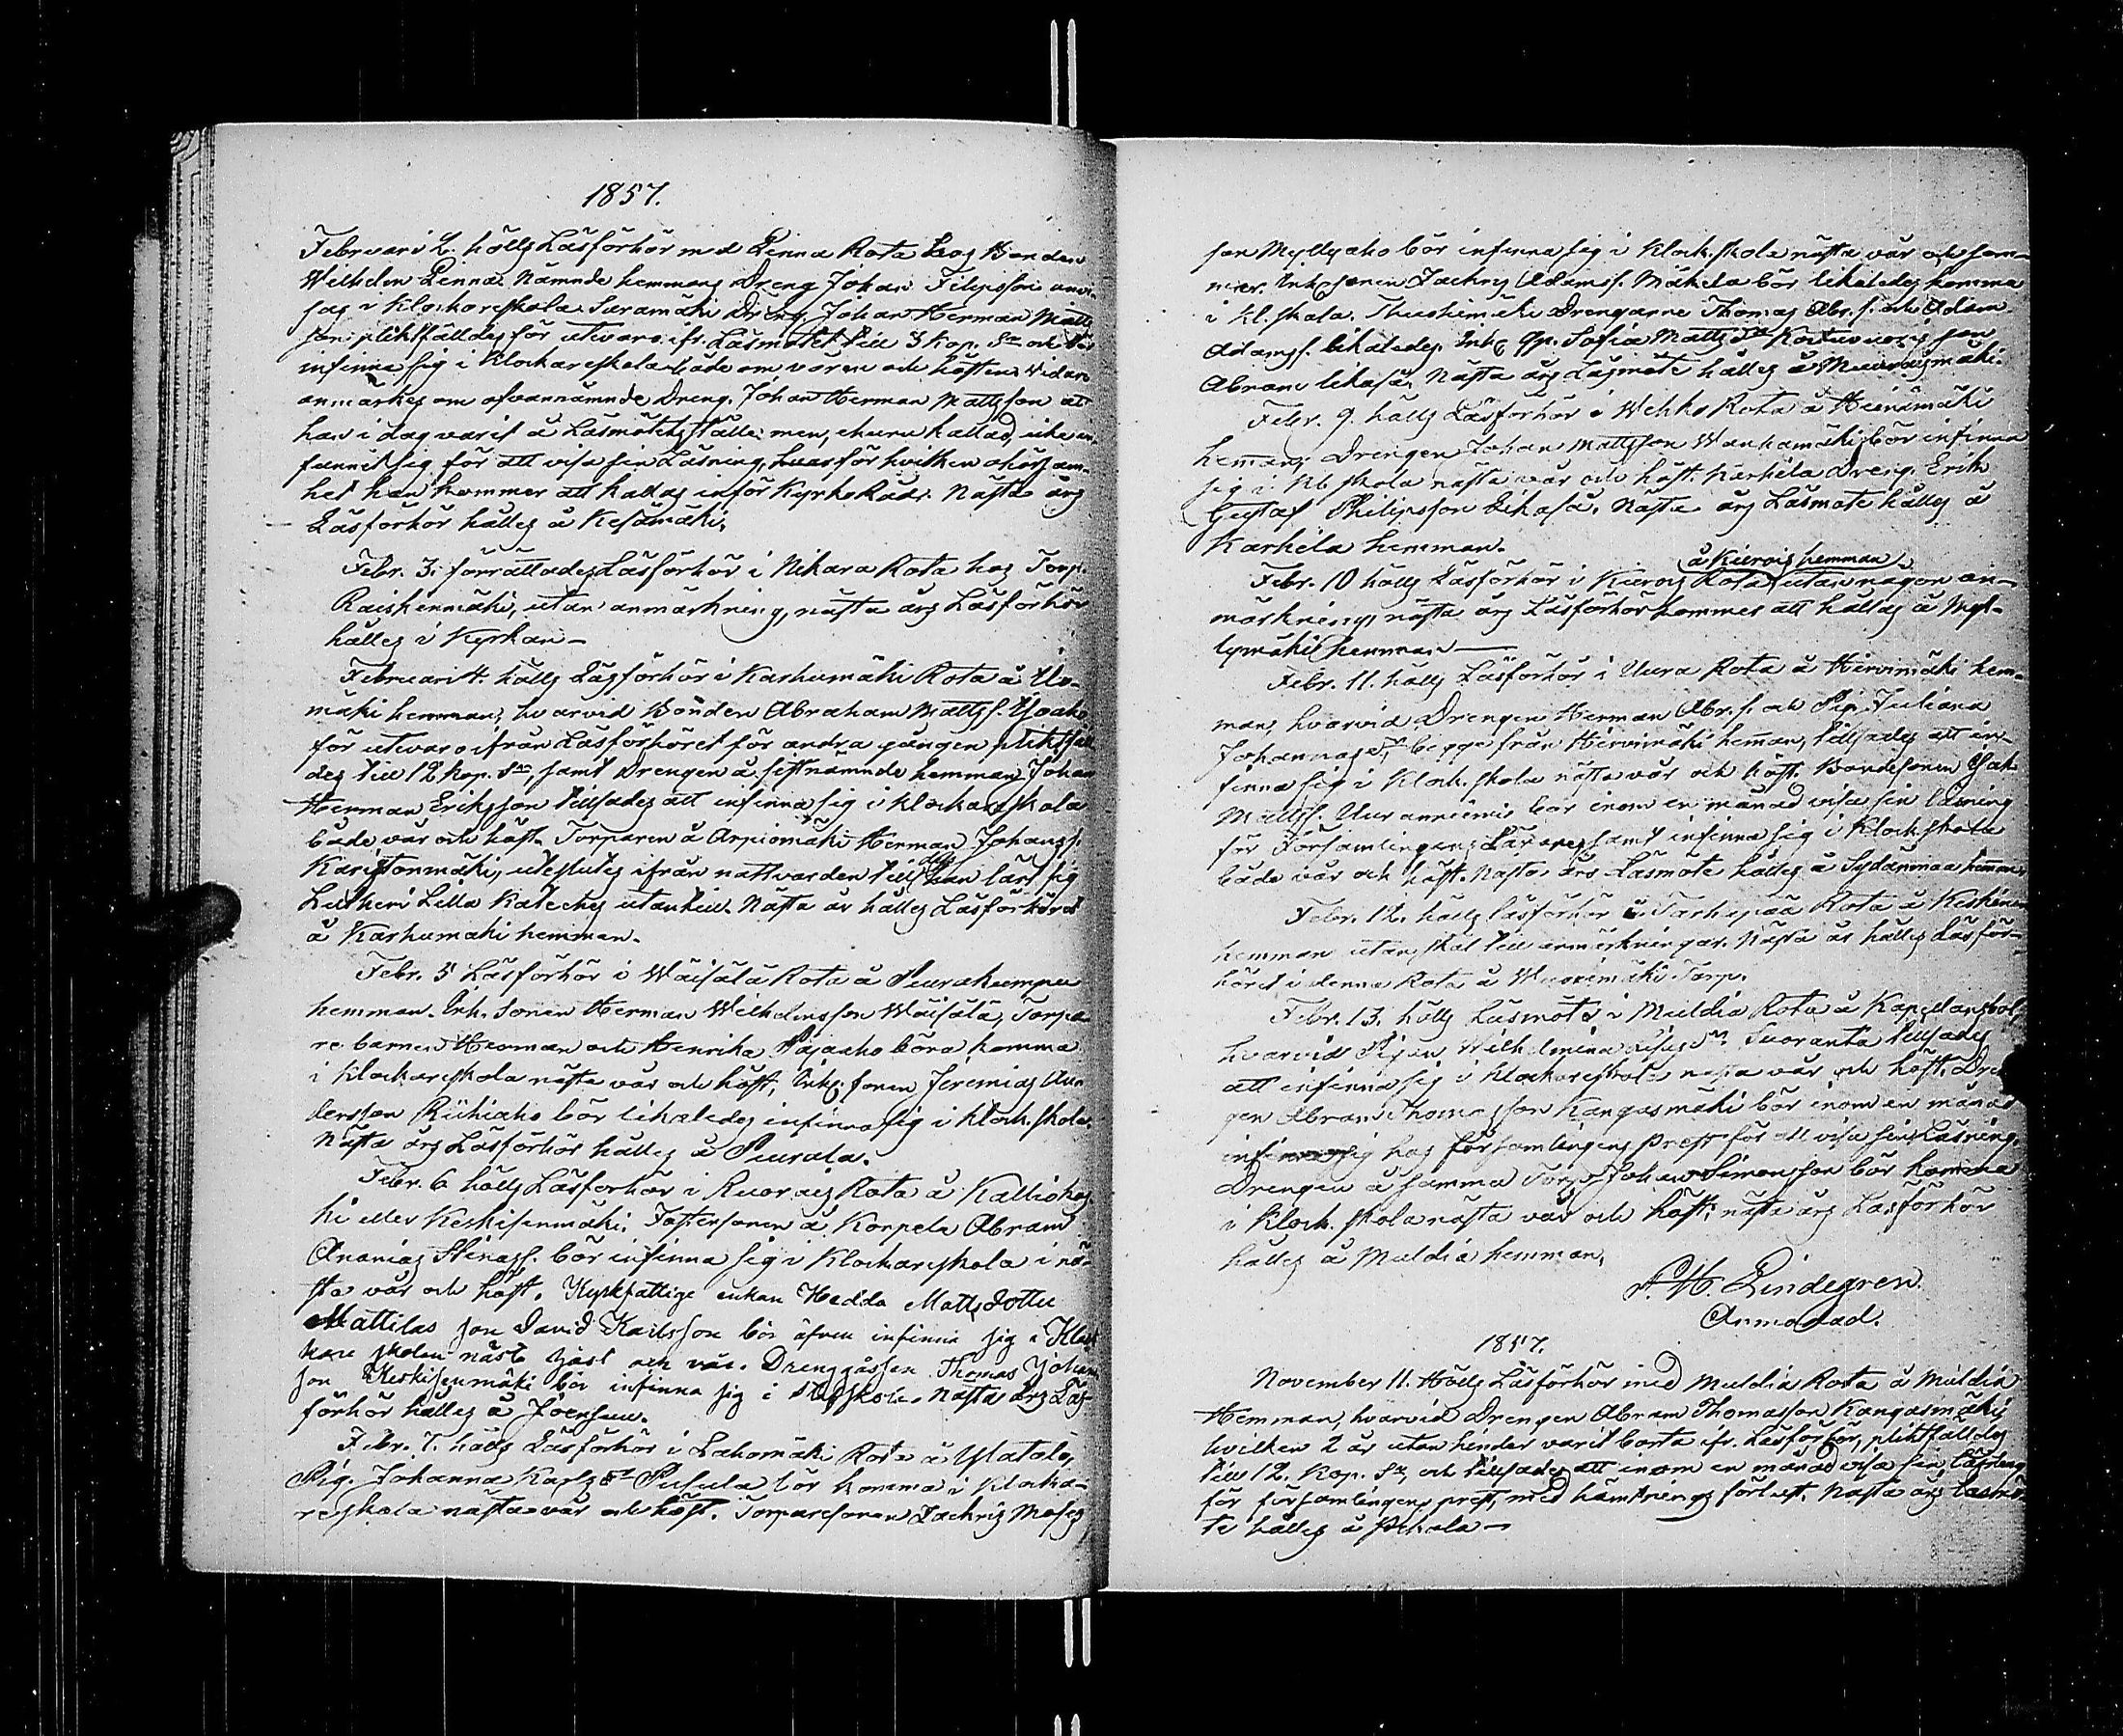 1857.
Februari 2. hölls Läsförhör med Pinna Rota hos Bonden
Wilhelm Pinna. Nämnde hemmans Dreng Johan Filipsson
sas i Klockareskola. Saramäki Dreng Johan Herman Matts
son pliktfälldes för utevaro ifr. Läsmötet till 3 kop. Sr och
infinna sig i Klockareskola både om våren och hösten. Vidare
anmärkes om ofvannämnde Dreng. Johan Herman Mattsson att
han i dag varit å Läsmötets ställe men, ehuru kallad, icke in-
funnit sig för att visa sin Läsning, för hvilken ohörsam-
het han kommer att kallas inför KyrkoRåd. Nästa års
Läsförhör hålles å Kesämäki.
Febr. 3. förrättades Läsförhör i Nikara Rota hos Torp.
Raiskinmäki, utan anmärkning, nästa års Läsförhör
hålles i Kyrkan —
Februari 4. hölls Läsförhör i Karhumäki Rota å
mäki hemman, hvarvid Bonden Abraham Mattss.
för utevaro ifrån Läsförhöret för andra gången pliktfäll
des till 12 kop. Sr, samt Drengen å sistnämnde hemman Johan
Herman Eriksson tillsades att infinna sig i Klockareskola
både vår och höst. Torparen å Arpiomäki Herman Johanss.
Karistonmäki, uteslutes ifrån nattvarden till dess han lärt sig
Lutheri Lilla Kateches utantill. Nästa år hålles Läsförhöret
å Karhumäki hemman.
Febr. 5 Läsförhör i Wäisälä Rota å Peurakumpu
hemman. Inh. Sonen Herman Wilhelmsson Wäisälä, Torpa-
re barnen Herman och Henrika Pajaaho böra komma
i Klockareskola nästa vår och höst, Inh. sonen Jeremias An-
dersson Riihiaho bör likaledes infinna sig i Klock. skola.
Nästa års Läsförhör hålles å Peurala.
Febr. 6 hölls Läsförhör i Ruorais Rota å Kallioko
ki eller Keskisenmäki. Fostersonen å Korpela Abram
Ananias Stinass. bör infinna sig i Klockareskola i nä-
sta vår och höst. Kyrkfattige enkan Hedda Mattsdotter
Mattilas son David Karlsson bör äfven infinna sig i Klock
kare skolan nästa höst och vår. Drenggåssen Thomas Johans
son Keskisenmäki bör infinna sig i Kl.skola. Nästa års Läs-
förhör hålles å Joensuu.
Febr. 7. hölls Läsförhör i Lahomäki Rota å Ylätalo,
Pig. Johanna Karlsdr Pusula bör komma i Klocka-
reskola nästa vår och höst. Torparesonen Zachris Moses
son Myllyaho bör infinna sig i Klock.skola nästa vår och som-
mar. Inh. sonen Zachris Adamss. Mäkelä bör likaledes komma
i Kl. skola. Drengarne Thomas Abr. s. och Adam
Adamss. likaledes. Inh. qv. Sofia Matts Dr son
Abram likaså. Nästa års Läsmöte hålles å
Febr. 9. hölls Läsförhör i Wehko Rota å Heinämäki
hemman; Drengen Johan Mattsson Wanhamäki bör infinna
sig i Kl. skola nästa vår och höst. Karhila Dreng. Erik
Gustaf Philipsson likaså. Nästa års Läsmöte hålles å
Karhila hemman.
å Kierois hemman
Febr. 10 hölls Läsförhör i Kierois Rota utan någon an-
märkning, nästa års Läsförhör kommer att hållas å Myl-
lymäki hemman —
Febr. 11. hölls Läsförhör i Uura Rota å Hirvimäki hem-
man, hvarvid Drengen Herman Abr. s. och Pig. Juliana
Johannasdr begge från Hirvimäki hemman, tillsades att in-
finna sig i Klock. skola nästa vår och höst. Bondesonen
Mattss. bör inom en månad visa sin läsning
för Församlingens Lärare samt infinna sig i Klock.skola
både vår och höst. Nästa års Läsmöte hålles å Sydänmaa hemman
Febr. 12. hölls läsförhör i Tarhapää Rota å Keskinen
hemman utan skäl till anmärkningar. Nästa år hålles Läsför-
höret i denna Rota å Wuorimäki Torp.
Febr. 13. hölls Läsmöte i Muldia Rota å Kapellansbol,
hvarvid Pigan Wilhelmina Suoranta tillsades
att infinna sig i Klockareskola nästa vår och höst. Dren
gen Abram Thomasson Kangasmäki bör inom en månad
infinna sig hos församlingens prest för att visa sin Läsning.
Drengen å samma Torp Johan Simonsson bör komma
i Klock. skola nästa vår och höst; nästa års Läsförhör
hålles å Muldia hemman.
Lindegren.
1857.
November 11. Hölls Läsförhör med Muldia Rota å Muldia
Hemman, hvarvid Drengen Abram Thomasson Kangasmäki,
hvilken 2 år utan hinder varit borta ifr. Läsförhör, pliktfälldes
till 12. Kop. Sr, och tillsades att inom en månad visa sin läsning
för församlingens prest, med hämtnings förlust. Nästa års Läsmö-
te hålles å Pekola —